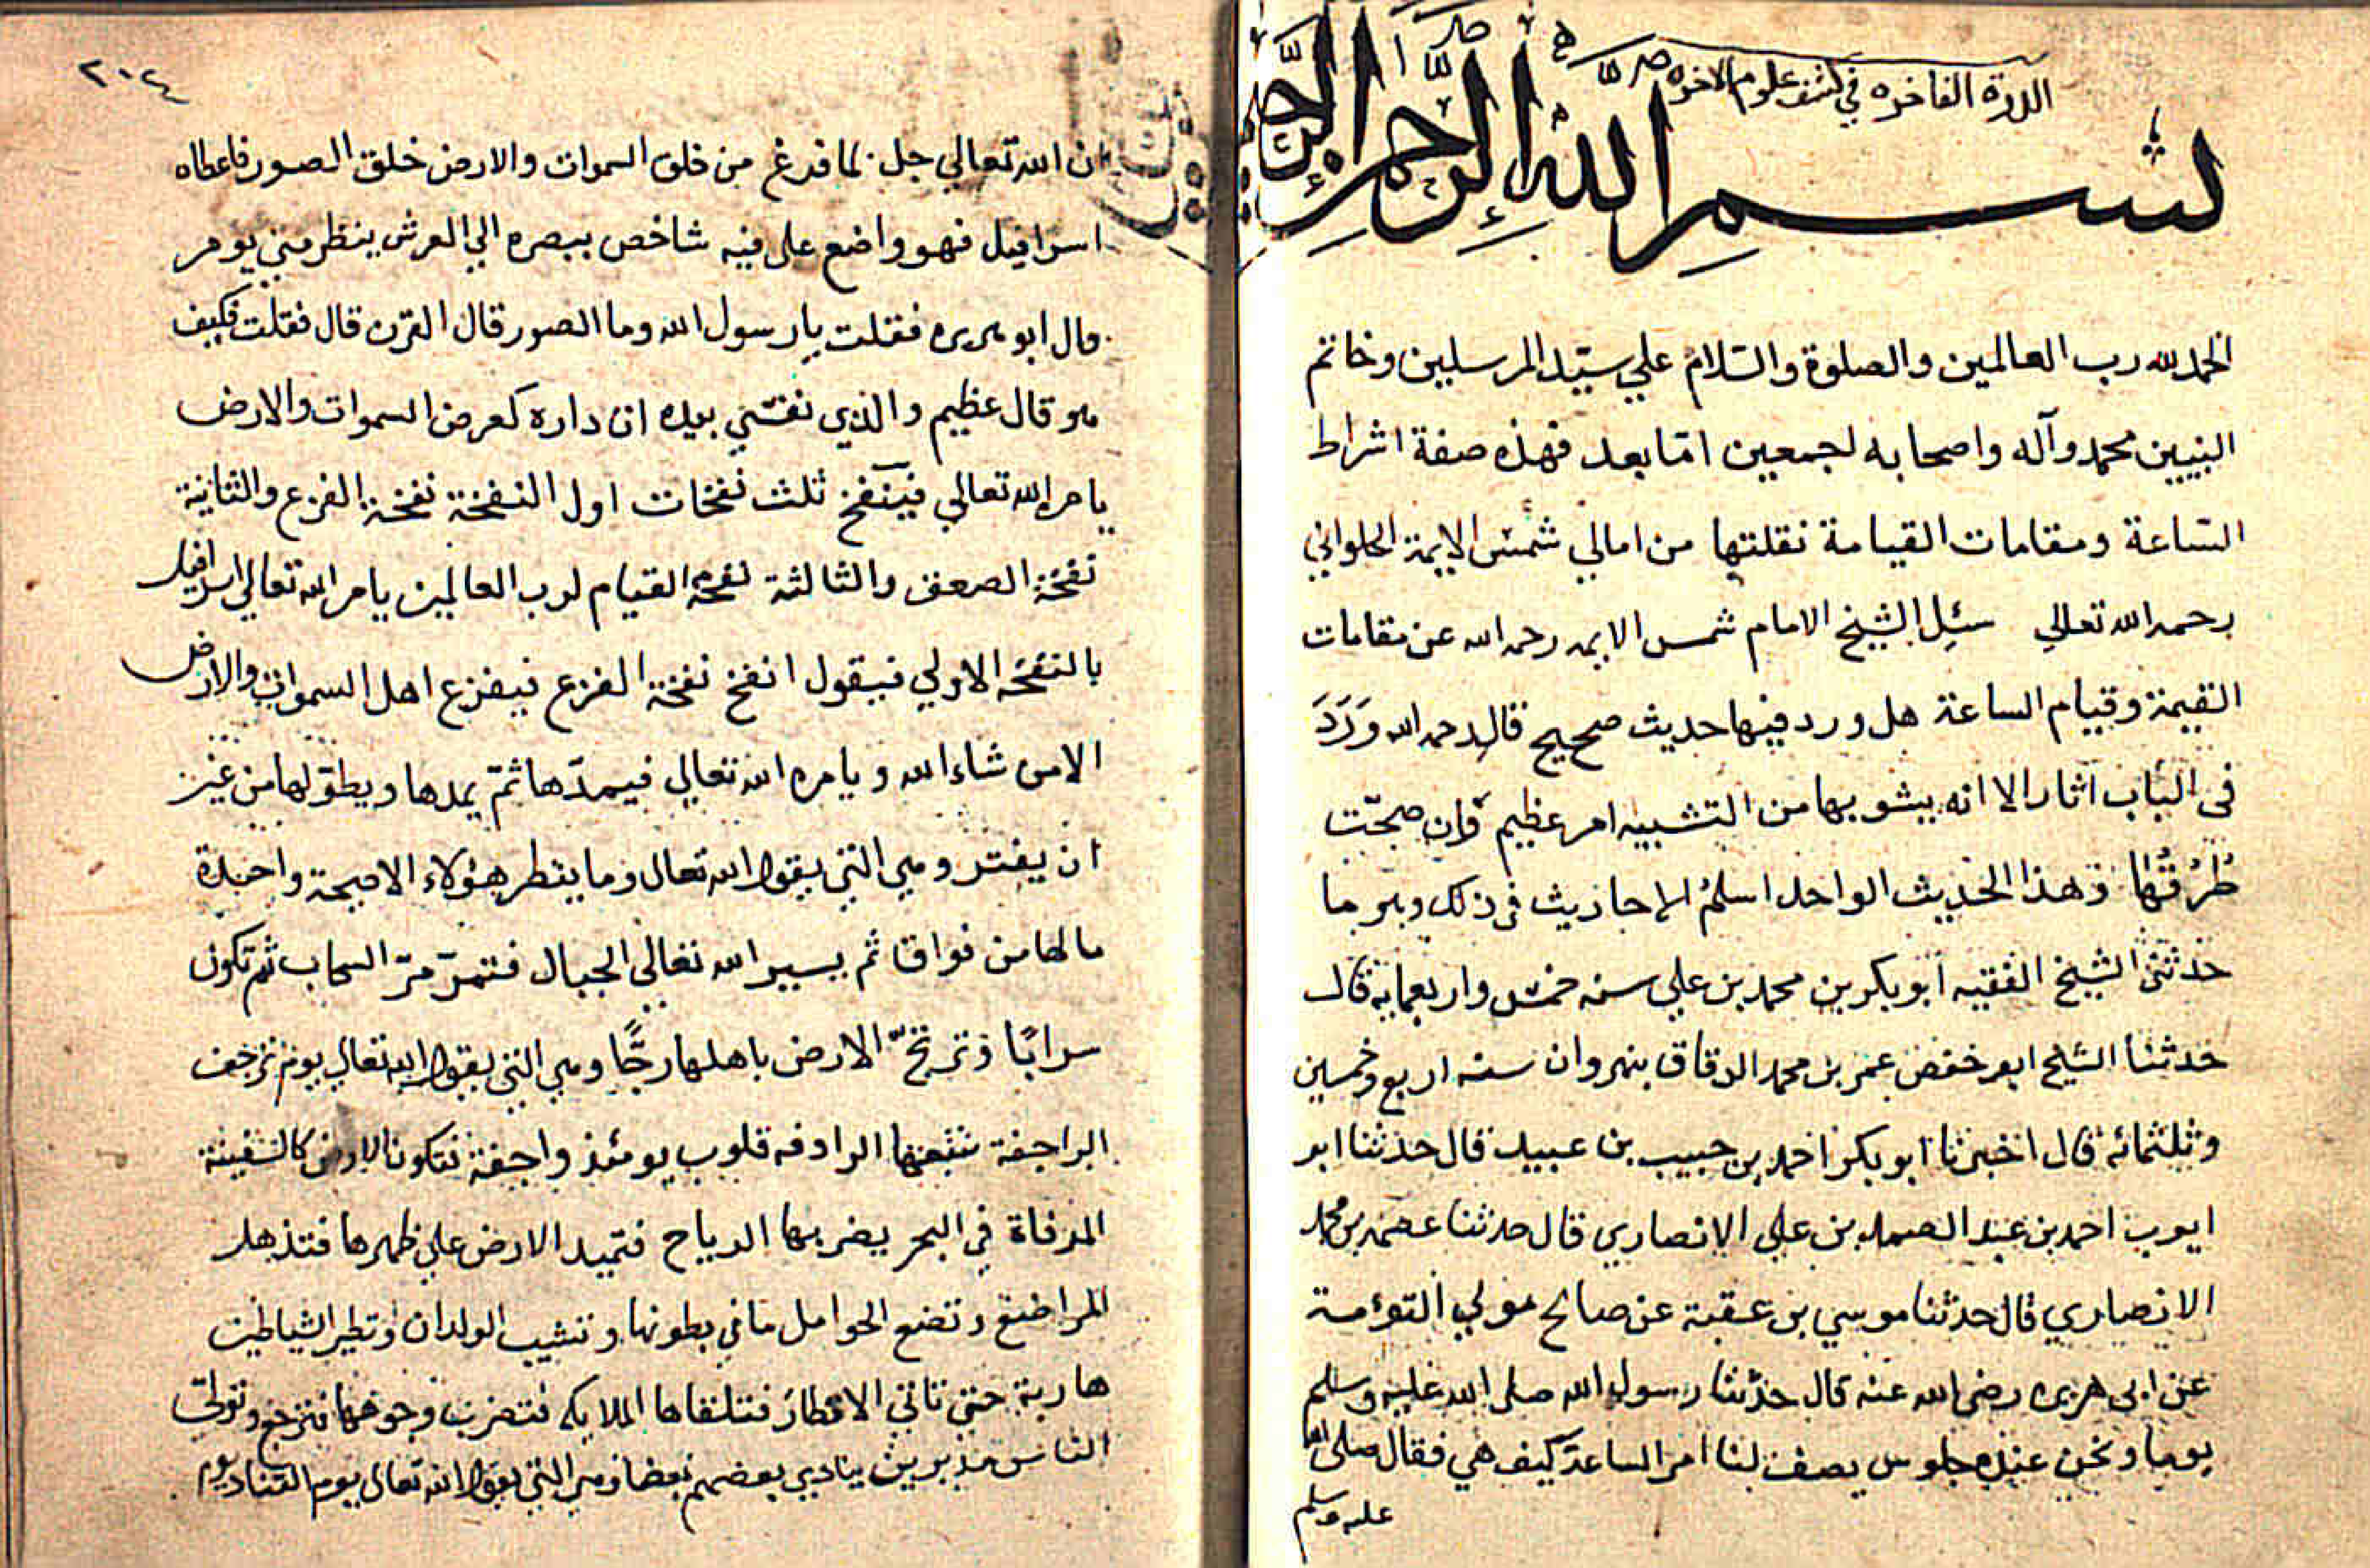 الدرة الفاخره في كشف علوم الاخره
بسم الله الرحمن الرحيم
الحمد لله رب العالمين والصلوة والسلام علي سيد المرسلين وخاتم
النبيين محمد وآله واصحابه اجمعين امّا بعد فهذه صفة اشراط
السّاعة ومقامات القيامة نقلتها من امالي شمس الايمة الحلواني
رحمه الله تعالي سئل الشيخ الامام شمس الايمه رحمه الله عن مقامات
القيمة وقيام الساعة هل ورد فيها حديث صحيح قال رحمه الله وَرَدَ
في الباب آثار الا انه يشوبها من التشبيه امر عظيم وان صحّت
طُرُقُها وهذا الحديث الواحد اسلمُ الاحاديث في ذلك وهو ما
حدثني الشيخ الفقيه ابو بكر بن محمد بن علي سنه خمس واربعمايه قال
حدثنا الشيخ ابو حفص عمر بن محمد الدقاق بنهروان سنه اربع وخمسين
وثلثمائه قال اخبرنا ابو بكر احمد بن حبيب بن عبيد قال حدثنا ابو
ايوب احمد بن عبد الصمد بن علي الانصاري قال حدثنا عصمه بن محمد
الانصاري قال حدثنا موسي بن عقبة عن صالح مولي التوءمة
عن ابي هريره رضي الله عنه قال حدّثنا رسول الله صلى الله عليه وسلم
يوما ونحن عنده جلوس يصف لنا امر الساعة كيف هي فقال صلى الله
عليه وسلم
٢٠٤
ان الله تعالي جل لما فرغ من خلق السموات والارض خلق الصور فاعطاه
اسرافيل فهو واضع علي فيه شاخص ببصره الي العرش ينظر متي يومر
قال ابو هريره فقلت يا رسول الله وما الصور قال القرن قال فقلت فكيف
هو قال عظيم والذي نفسي بيده ان داره كعرض السموات والارض
يامر الله تعالي فينفخ ثلث نفخات اول النفخة نفخة الفزع والثانية
نفخة الصعق والثالثة نفخة القيام لرب العالمين يامر الله تعالي اسرافيل
بالنفخه الاولي فيقول انفخ نفخة الفزع فيفزع اهل السموات والارض
الا من شاء الله ويامره الله تعالي فيمدّها ثمّ يمدها ويطوّلها من غير
ان يفتر وهي التي يقول الله تعالي وما ينظر هؤلاء الا صيحة واحدة
ما لها من فواق ثم يسير الله تعالي الجبال فتمرّ مرّ السحاب ثم تكون
سرابًا وترتجّ الارض باهلها رجًّا وهي التي يقول الله تعالي يوم ترجف
الراجفة تتبعها الرادفه قلوب يومئذ واجفة فتكون الارض كالسفينة
المرفاة في البحر يضربها الرياح فتميد الارض علي ظهرها فتذهل
المراضع وتضع الحوامل ما في بطونها وتشيب الولدان وتطير الشياطين
هاربة حتي تاتي الاقطار فتلقاها الملايكه فتضرب وجوهها فترجع وتولي
الناس مدبرين ينادي بعضهم بعضا وهي التي يقول الله تعالي يوم التناد يوم